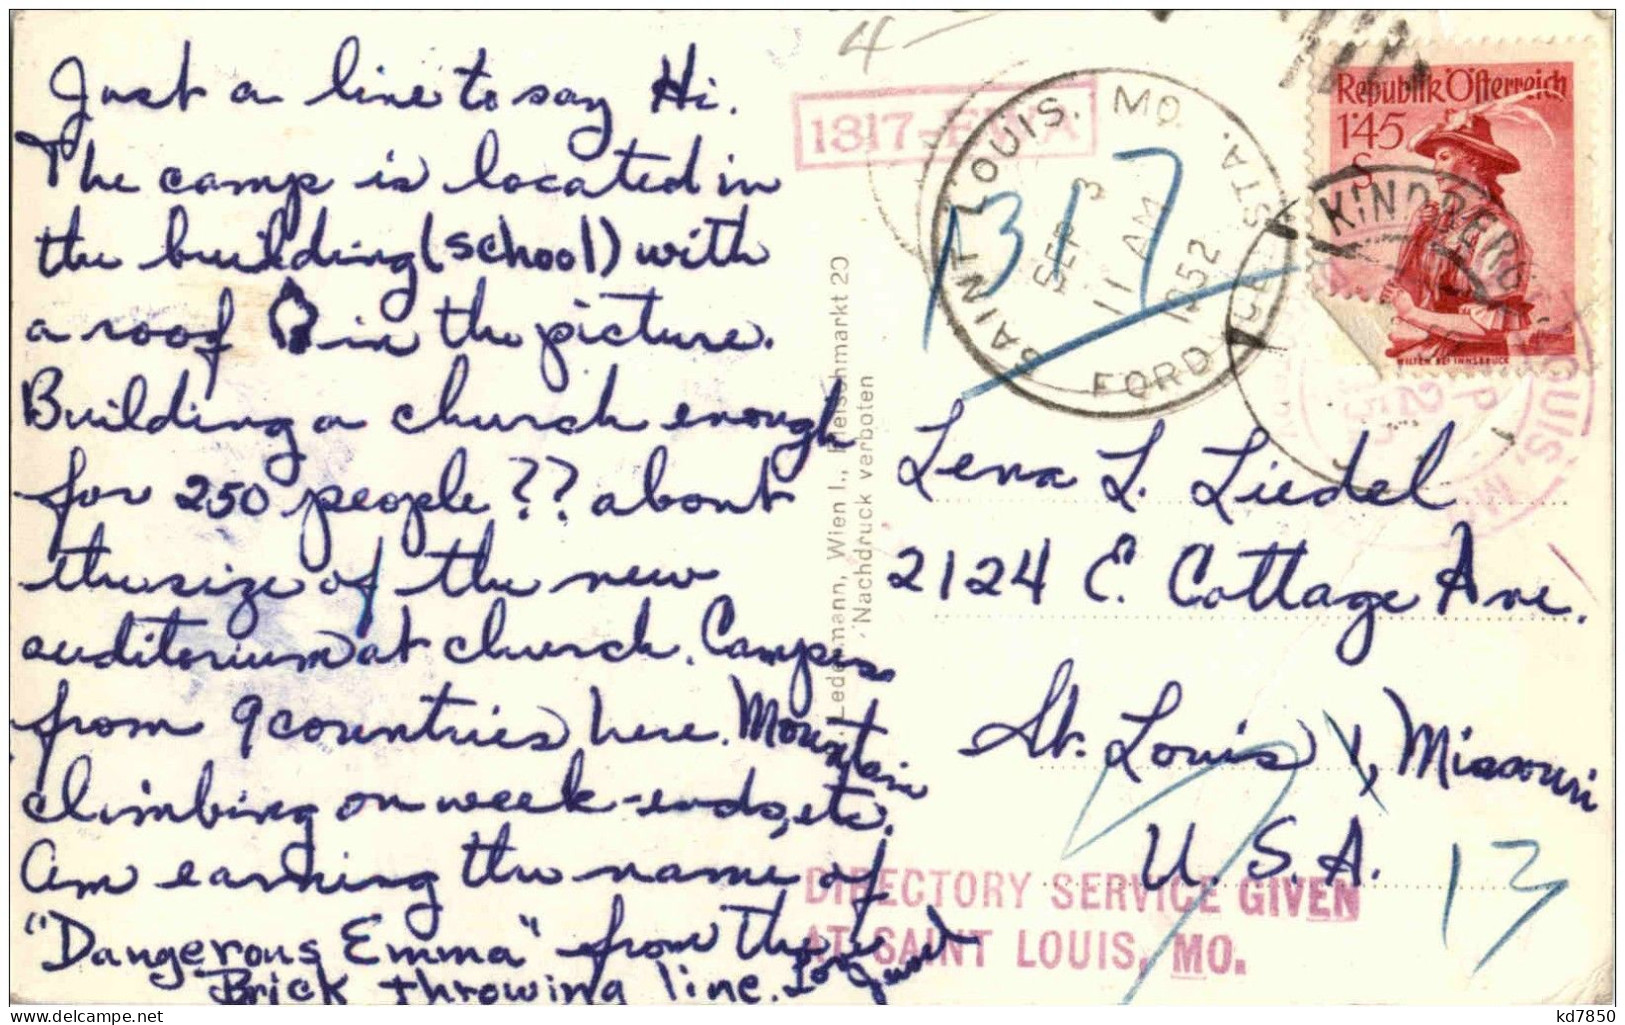 Just a line to say Hi.
The camp is located in
the building (school) with
a roof in the picture.
Building a church enough
for 250 people?? about
the size of the new
auditorium at church. Campers
from 9 countries here. Mountain
climbing on week-ends, etc.
Am earning the name of
"Dangerous Emma" from the
Brick throwing line.
4
1317
1317
SAINT LOUIS, MO.
SEP 3
11 AM
1952
FORD
STA.
Republik Österreich
1·45
S
WILTEN BEI INNSBRUCK
KINDBERG
LOUIS, M
Lena L. Liedel
2124 E. Cottage Ave.
St. Louis 1, Missouri
U. S. A.
13
DIRECTORY SERVICE GIVEN
AT SAINT LOUIS, MO.
Ledermann, Wien I., Fleischmarkt 20
Nachdruck verboten
kd7850